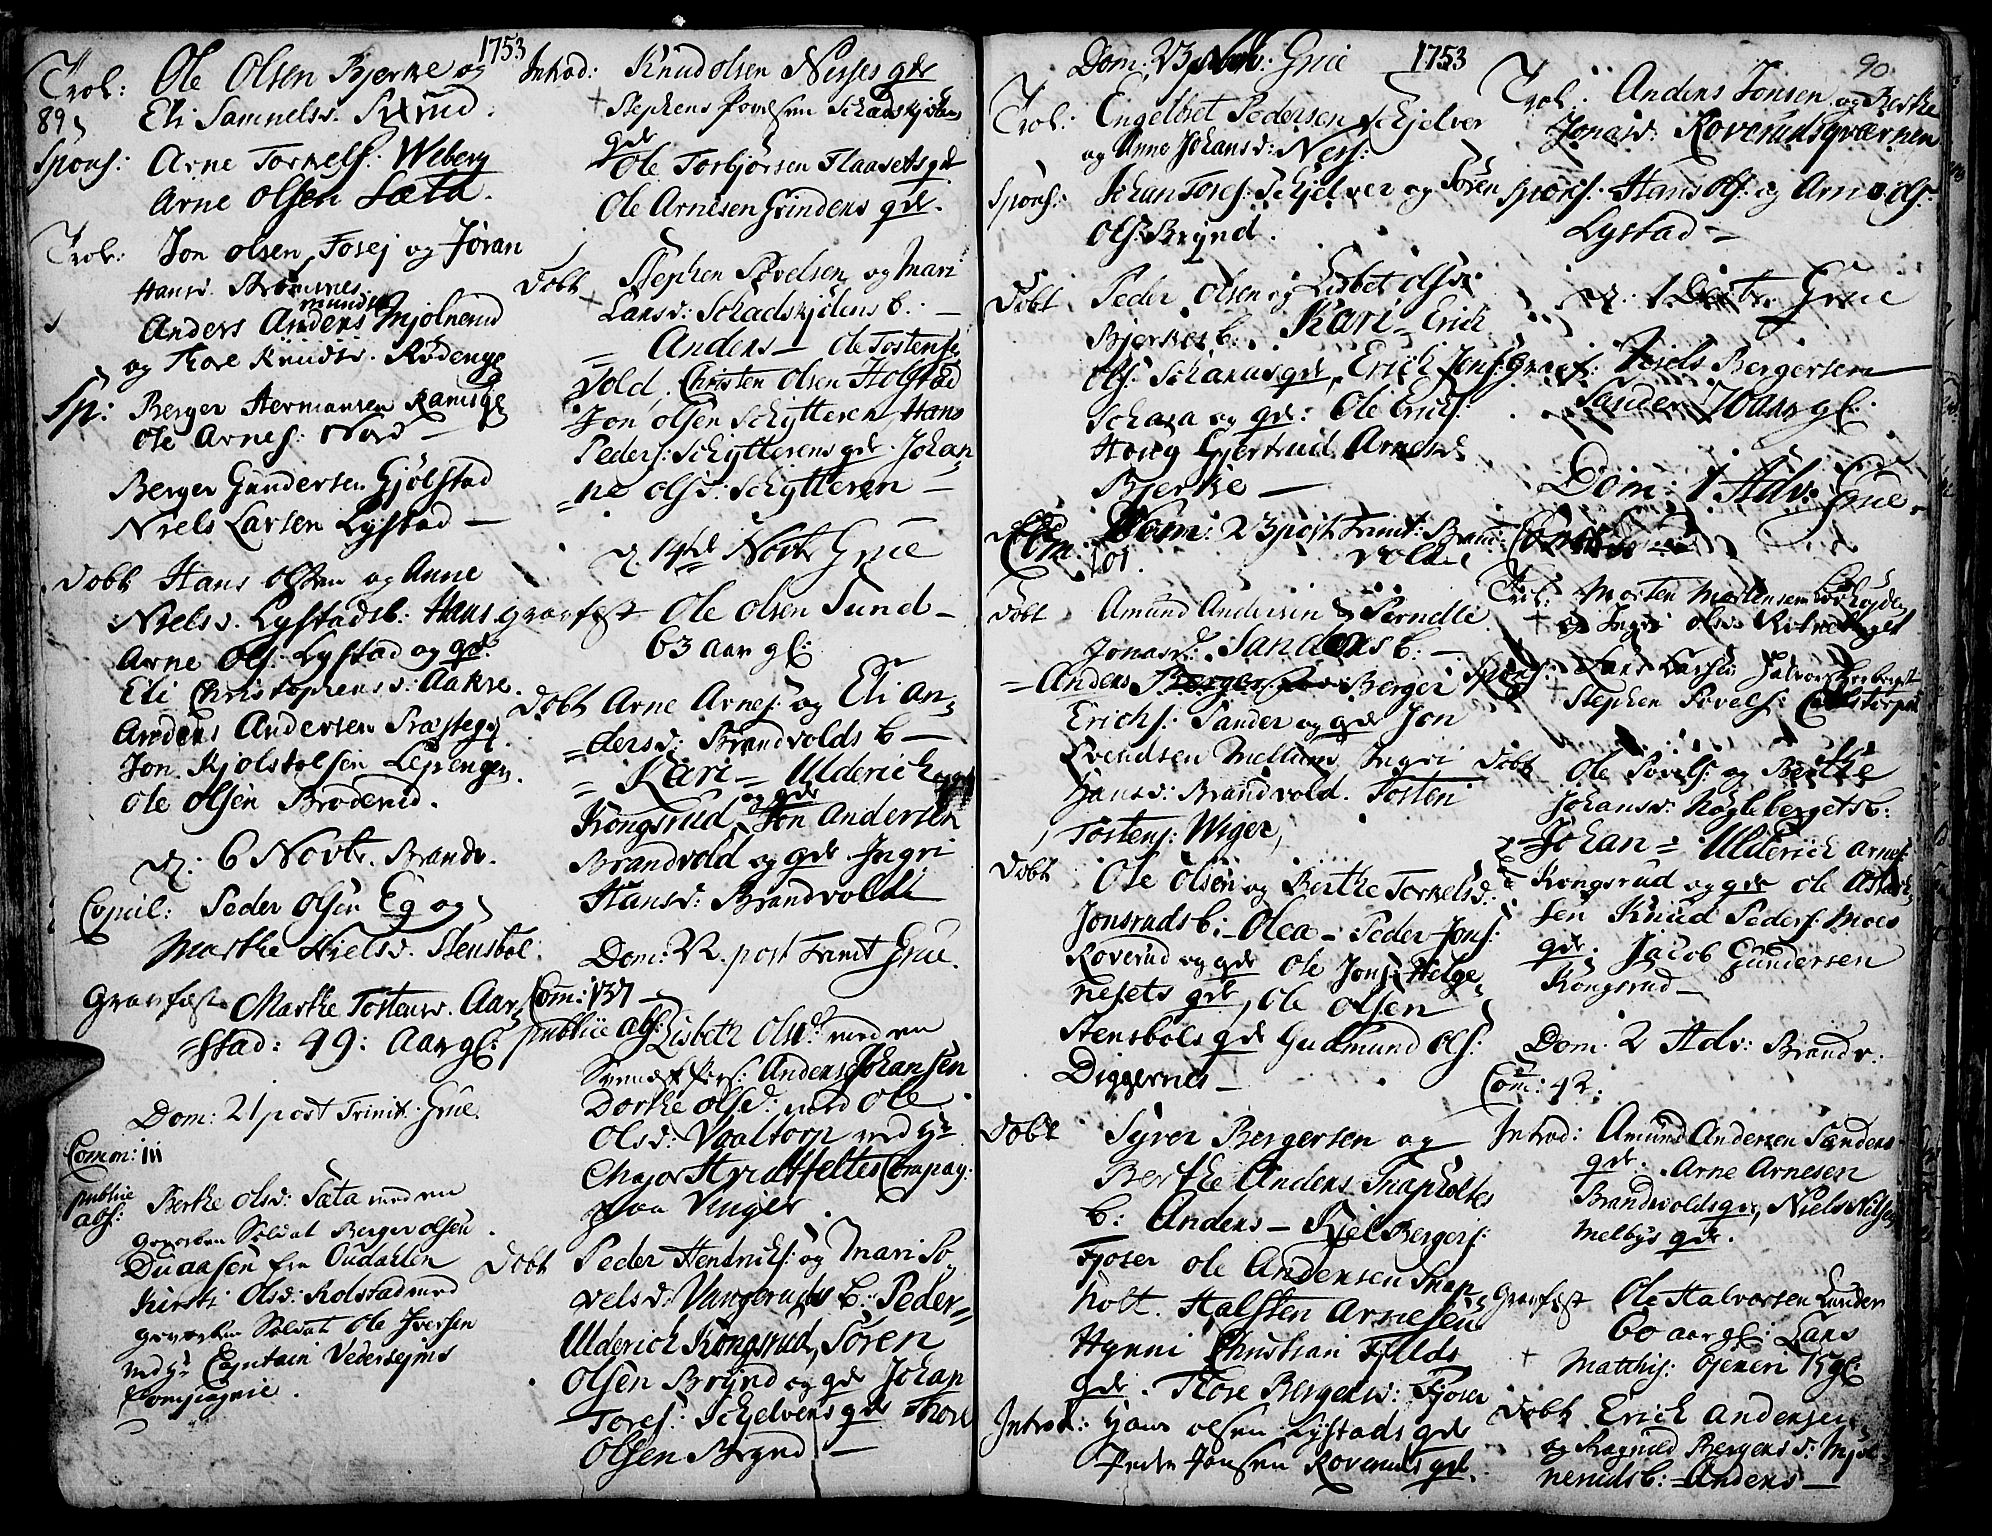 1753
Trol: Ole Olsen Bjerke og
89 Eli Samuelsd. Strud
Spons: Arne Torkels: Weberg
Arne Olsen Sæta.
Trol: Jon Olsen Fosej og Jøran
Hansd. Strømnes
Anders Amundsen Mjølnerud
og Thore Knudsd. Rødenge
Sp: Berger Hermansen Ramsøe
Ole Arnes: Nord
Berger Gundersen Gjølstad
Niels Larsen Lystad
Døbt Hans Olsen og Anne
Nielsd. Lystads b: Hans
Arne Ols: Lystad og qde.
Eli Christophersd: Aakre.
Anders Andersen Præsteg.
Jon Kjølstolsen Lepengen.
Ole Olsen Broderud.
D. 6 Novbr. Brandv.
Copul: Peder Olsen Eg og
Marthe Nielsd. Stensbøl.
Gravfæst Marthe Tostensd. Aar-
stad: 49: Aar gl:
Dom: 21 post Trinit. Grue.
Comm: 111
publice Berthe Olsd: Sæta med en
abs: geworben Soldat Berger Olsen
Duaasen fra Oudalen
Kirsti Olsd: Rolstad med
geworben Soldat Ole Iversen
ved Hr Capitain Vedersejms
Compagnie.
Introd: Knud Olsen Nesses qde
Stephens Povelsen Schadskjølens
qde
Ole Torbjørsen Flaasets qde
Ole Arnesen Grindens qde.
Døbt Stephen Povelsen og Mari
Larsd: Schadskjølens b:
Anders Ole Tostens:
Vold, Christen Olsen Holstad
Jon Olsen Schytteren, Hans
Peders: Schytterens qde. Johan-
ne Olsd: Schytteren
D. 14de Novbr Grue
gravfæst Ole Olsen Sund
63 aar gl:
Døbt Arne Arnes: og Eli An-
dersd: Brandvolds b
Kari Ulderich
Kongsrud og qde Jon Andersen
Brandvold og qde. Ingri
Hansd: Brandvold
Dom: 22. post Trinit Grue.
Com: 137
publice abs: Lisbeth Olsd. med en
Anders Johansen
Dorthe Olsd. med Ole
Olsd: Vaaltorp ved Hr
Major Compag:
paa Vinger.
Døbt Peder Hendrichs: og Mari Po-
velsd: Vangeruds b: Peder
Ulderich Kongsrud, Søren
Olsen Brynd og qde Johan
Tores: Schjelvens qde Thore
Olsen Brynd
Dom: 23 post: Grue 1753
Trol: Engelbret Pedersen Schjelver
og Anne Johansd: Ness:
Spons: Johan Tores: Schjelver og Søren
Ols: Brynd.
Døbt Peder Olsen og Lisbet Olsd:
Bjerkes b: Kari Erich
Ols: Scharas qde, Erich Jons:
Schara og qde: Ole Erichs:
Haug Gjertrud Arnesd.
Bjerke
Dom: 23 post Trinit: Brand-
Com: 101. vold
Døbt Amund Andersen og Pernelle
Jonasd: Sandens b:
Anders Berger
Erichs: Sander og qde Jon
Svendsen Mellum, Ingri
Hansd: Brandvold. Tosten
Tostens: Wiger,
Døbt Ole Olsen og Berthe Torkelsd:
Jonsruds b: Olea Peder Jons:
Roverud og qde Ole Jons: Helge-
nesets qde, Ole Olsen
Stensbøls qde Gudmund Ols:
Diggernes
Døbt Syver Bergersen og
Berthe Anders Snapholtes
b: Anders Kiel Bergers:
Fjoser Ole Andersen Snap-
holt. Halsten Arnesen
Hynni Christian Fjelds
qde. Thore Bergersd: Fjoser
Introd: Hans Olsen Lystads qde
Peder Jonsen Roveruds qde.
90
Trol: Anders Jonsen og Berthe
Jonasd: Roverudsqværnen
Spons: Hans Ols: og Arne Ols:
Lystad
D. 1 Decbr. Grue
Gravf: Niels Bergersen
Sander 70 aar gl:
Dom: 1 Adv: Grue.
Trol: Morten Mortensen
og Ingri Olsd:
Spons: Lars Larsen
Stephen Povels:
Døbt Ole Povels: og Berthe
Johansd: Nøglebergets b:
Johan Ulderich Arnes:
Kongsrud og qde Ole
sen Knud Peders: Moes
qde. Jacob Gundersen
Kongsrud
Dom: 2 Adv: Brandv:
Com: 42.
Introd: Amund Andersen Sandens
qde. Arne Arnesen
Brandvolds qde, Niels Nilsen
Melbys qde.
Gravfæst Ole Halvorsen Lunder
60 aar gl: Lars
Matthis: Openen 15 gl:
Døbt Erich Andersen
og Ragnild Bergersd: Mjøl-
neruds b: Anders